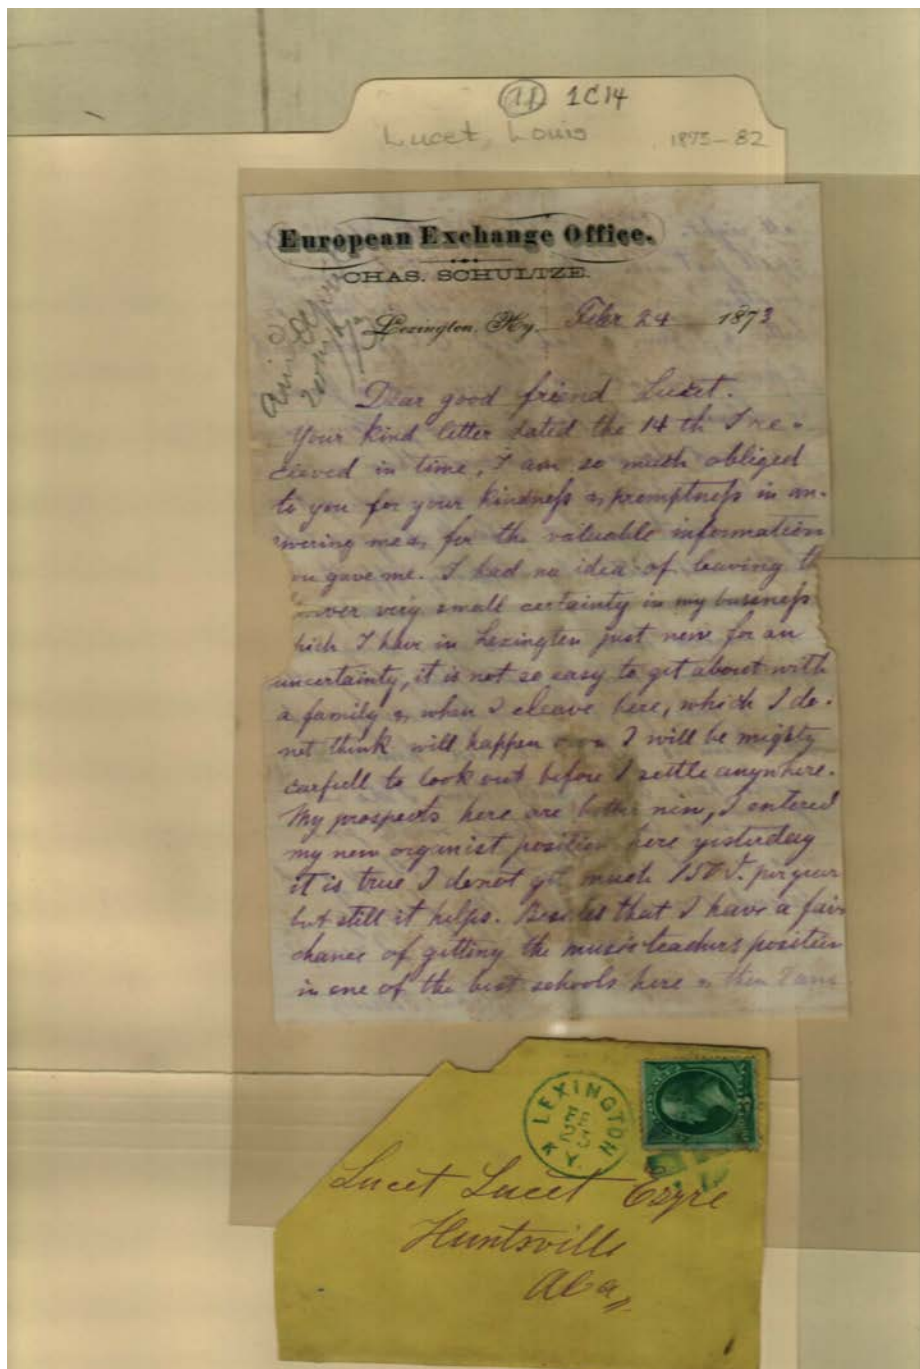 11 1C14
Lucet, Louis 1873-82
European Exchange Office.
CHAS. SCHULTZE.
Lexington, Ky. Febr 24 1873
Dear good friend Lucet.
Your kind letter dated the 14 th I re-
cieved in time, I am so much obliged
to you for your kindness & promptness in an-
swering me & for the valuable information
ou gave me. I had no idea of leaving th
ever very small certainty in my business
hich I have in Lexington just now for an
uncertainty, it is not so easy to get about with
a family & when I cleave here, which I do
not think will happen I will be mighty
carfull to look out before I settle anywhere.
My prospects here are better now, I entered
my new organist position here yesterday
it is true I donot get much 150 $. per year
but still it helps. Besides that I have a fair
chance of getting the music teachers position
in one of the best schools here & then I am
LEXINGTON
FEB
25
KY.
Lucet Lucet Esqre
Huntsville
Ala,,